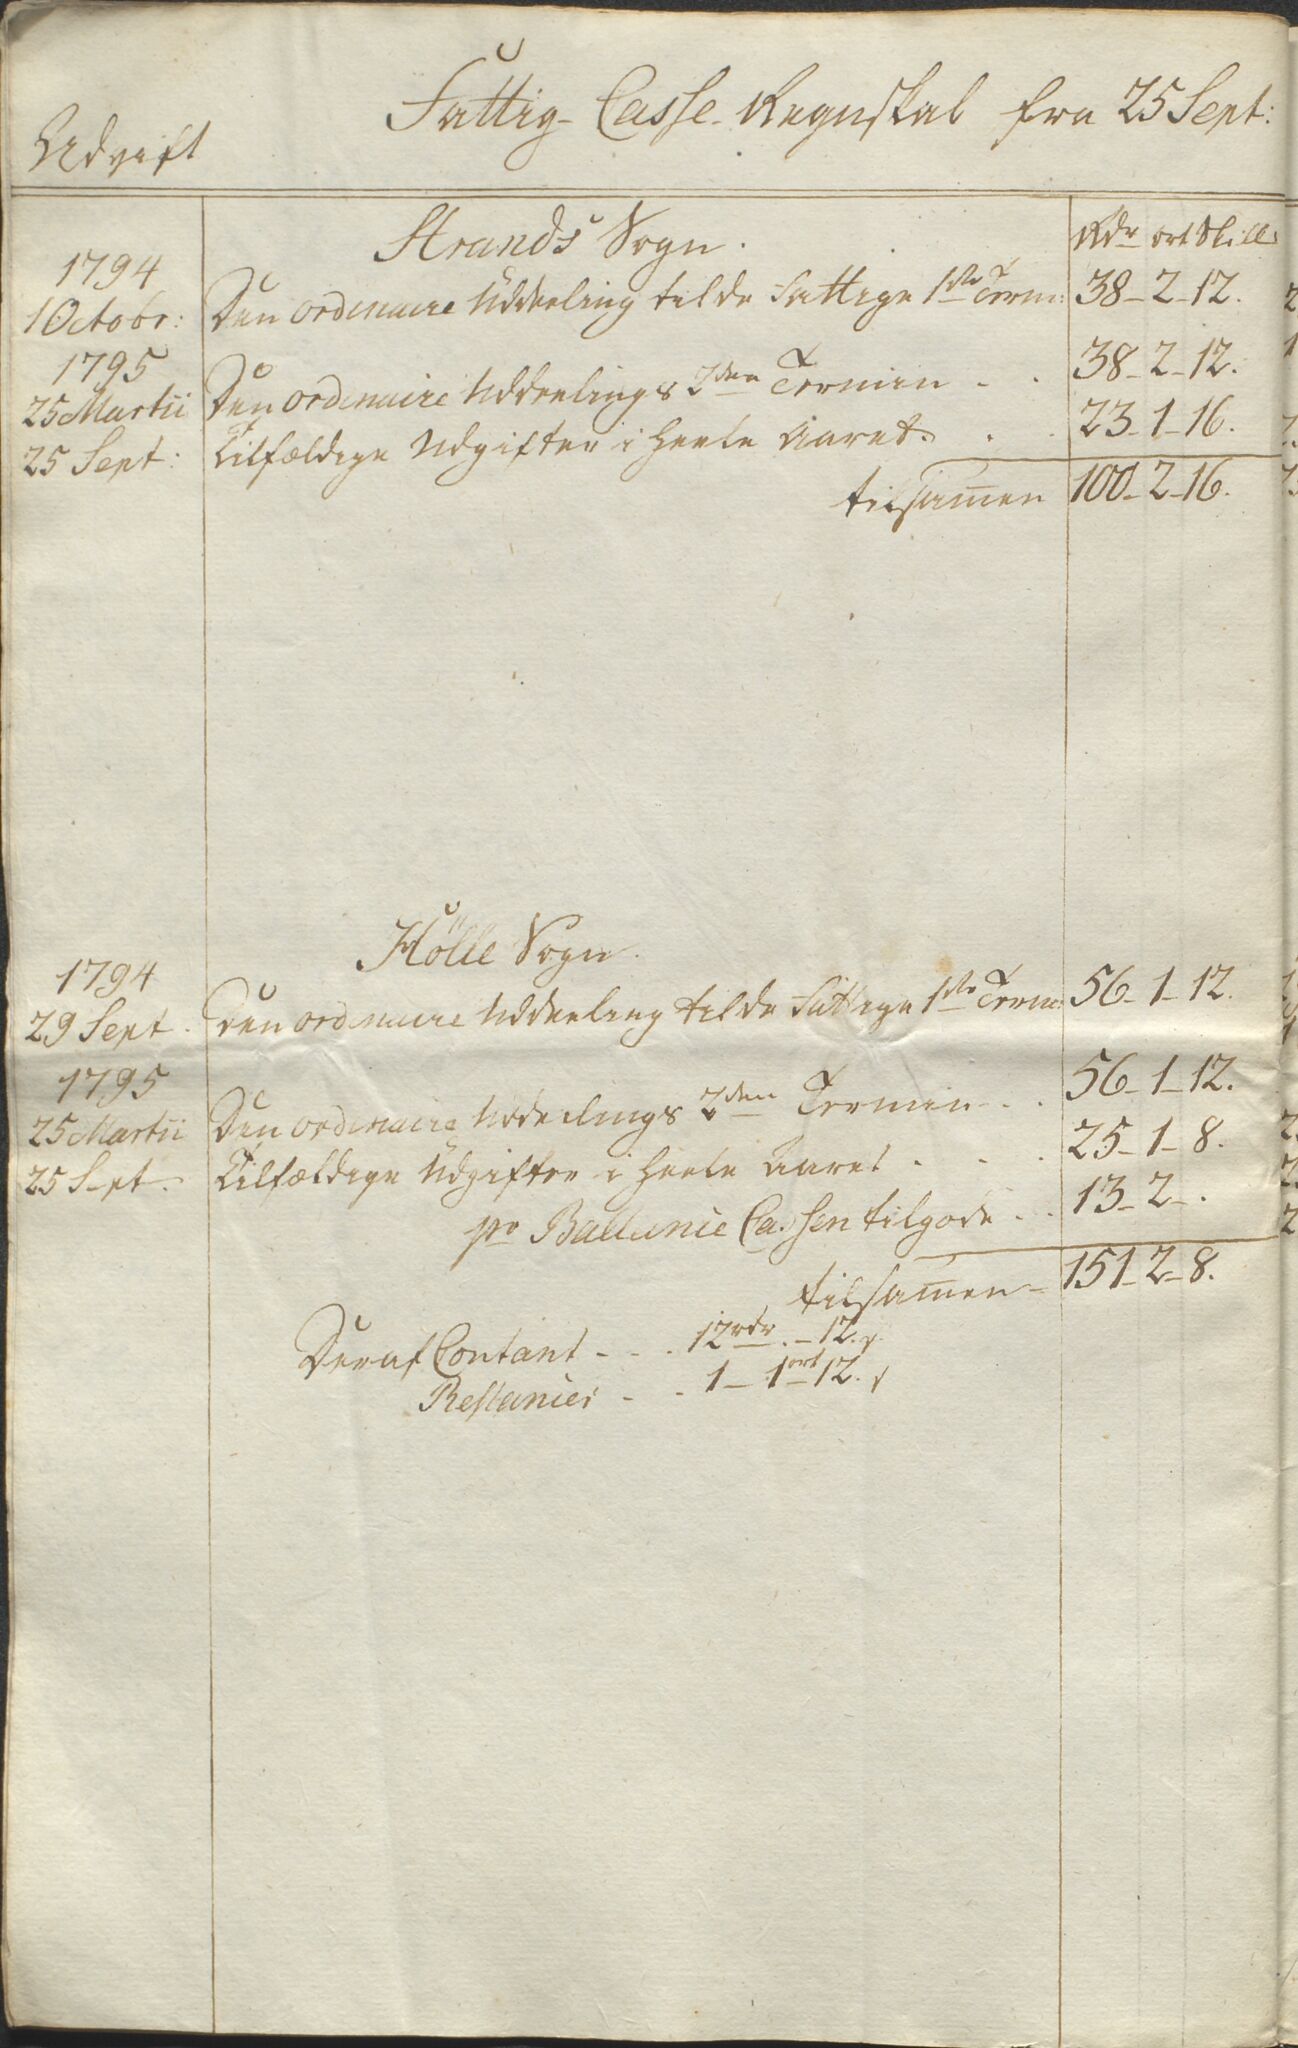 Fattig-Casse-Regnskab fra 25 Sept:
Udgift
Strands Sogn.
Rdr ort Skill
1794
1 Octobr: Den ordinaire Uddeeling til de Fattige 1ste Term: 38-2-12.
1795
25 Martii Den ordinaire Uddeelings 2den Termin - . 38-2-12.
25 Sept: Tilfældige Udgifter i heele Aaret. . . 23-1-16.
tilsammen 100-2-16.
Hölle Sogn.
1794
29 Sept. Den ordinaire Uddeeling til de Fattige 1ste Term: 56-1-12.
1795
25 Martii Den ordinaire Uddeelings 2den Termin - . . 56-1-12.
25 Sept. Tilfældige Udgifter i heele Aaret . . . 25-1-8.
pr Ballance Cassen tilgode . . 13-2-.
tilsammen - 151-2-8.
Deraf Contant - - . 12 rdr. - 12. s
Restancer - - 1- 1 ort 12. s